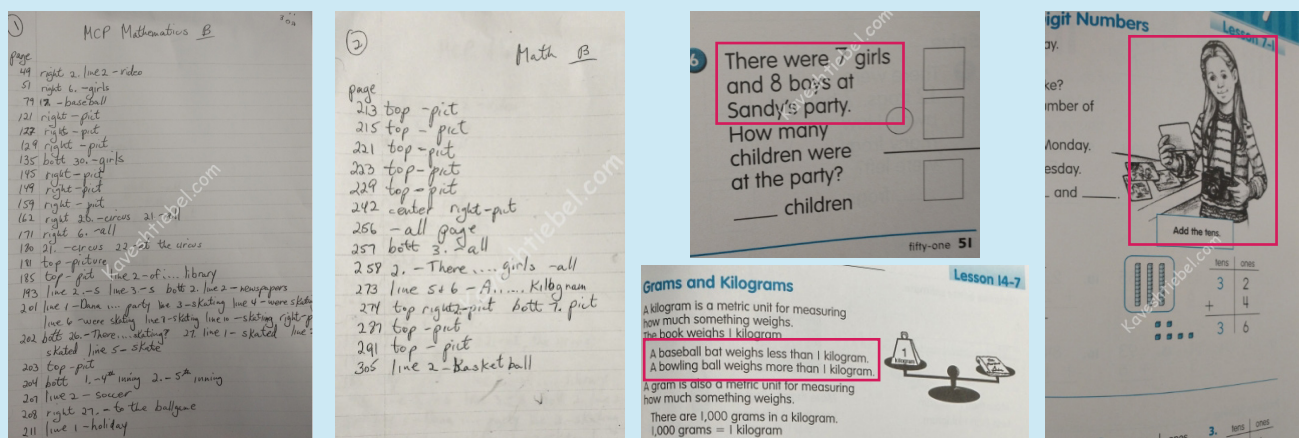 1
MCP Mathematics B
page
49 right 2. line 2 - video
51 right 6. - girls
79 18. - baseball
121 right - pict
127 right - pict
129 right - pict
135 bott 30. - girls
145 right - pict
149 right - pict
159 right - pict
162 right 20. - circus 21.
171 right 6. - all
180 21. - circus 22. at the circus
181 top - picture
185 top - pict line 2 - of .... library
193 line 2. - 5 line 3 - 5 bott 2. line 2 - newspapers
201 line 1 - Dana .... party line 3 - skating line 4 - were skating
line 6 - were skating line 7 - skating line 10 - skating, right - p
202 bott 26. - There .... skating? 27. line 1 - skated line
skated line 5 - skate
203 top - pict
204 bott 1. - 4th inning 2. - 5th inning
207 line 2 - soccer
208 right 27. - to the ballgame
211 line 1 - holiday
Kaveshtiebel.com
2
Math B
page
213 top - pict
215 top - pict
221 top - pict
223 top - pict
229 top - pict
242 center right - pict
256 - all page
257 bott 3. - all
258 2. - There .... girls - all
273 line 5+6 - A ...... Kilogram
274 top right 2 - pict bott 7. pict
287 top - pict
291 top - pict
305 line 2 - Basketball
Kaveshtiebel.com
6
There were 7 girls
and 8 boys at
Sandy's party.
How many
children were
at the party?
children
fifty-one 51
Kaveshtiebel.com
Grams and Kilograms
Lesson 14-7
A kilogram is a metric unit for measuring
how much something weighs.
The book weighs 1 kilogram
A baseball bat weighs less than 1 kilogram.
A bowling ball weighs more than 1 kilogram.
A gram is also a metric unit for measuring
how much something weighs.
There are 1,000 grams in a kilogram.
1,000 grams = 1 kilogram
1
kilogram
igit Numbers
Lesson 7-1
ay.
ke?
mber of
Monday.
esday.
and
Add the tens.
tens ones
3 2
+ 4
3 6
Kaveshtiebel.com
3. tens ones